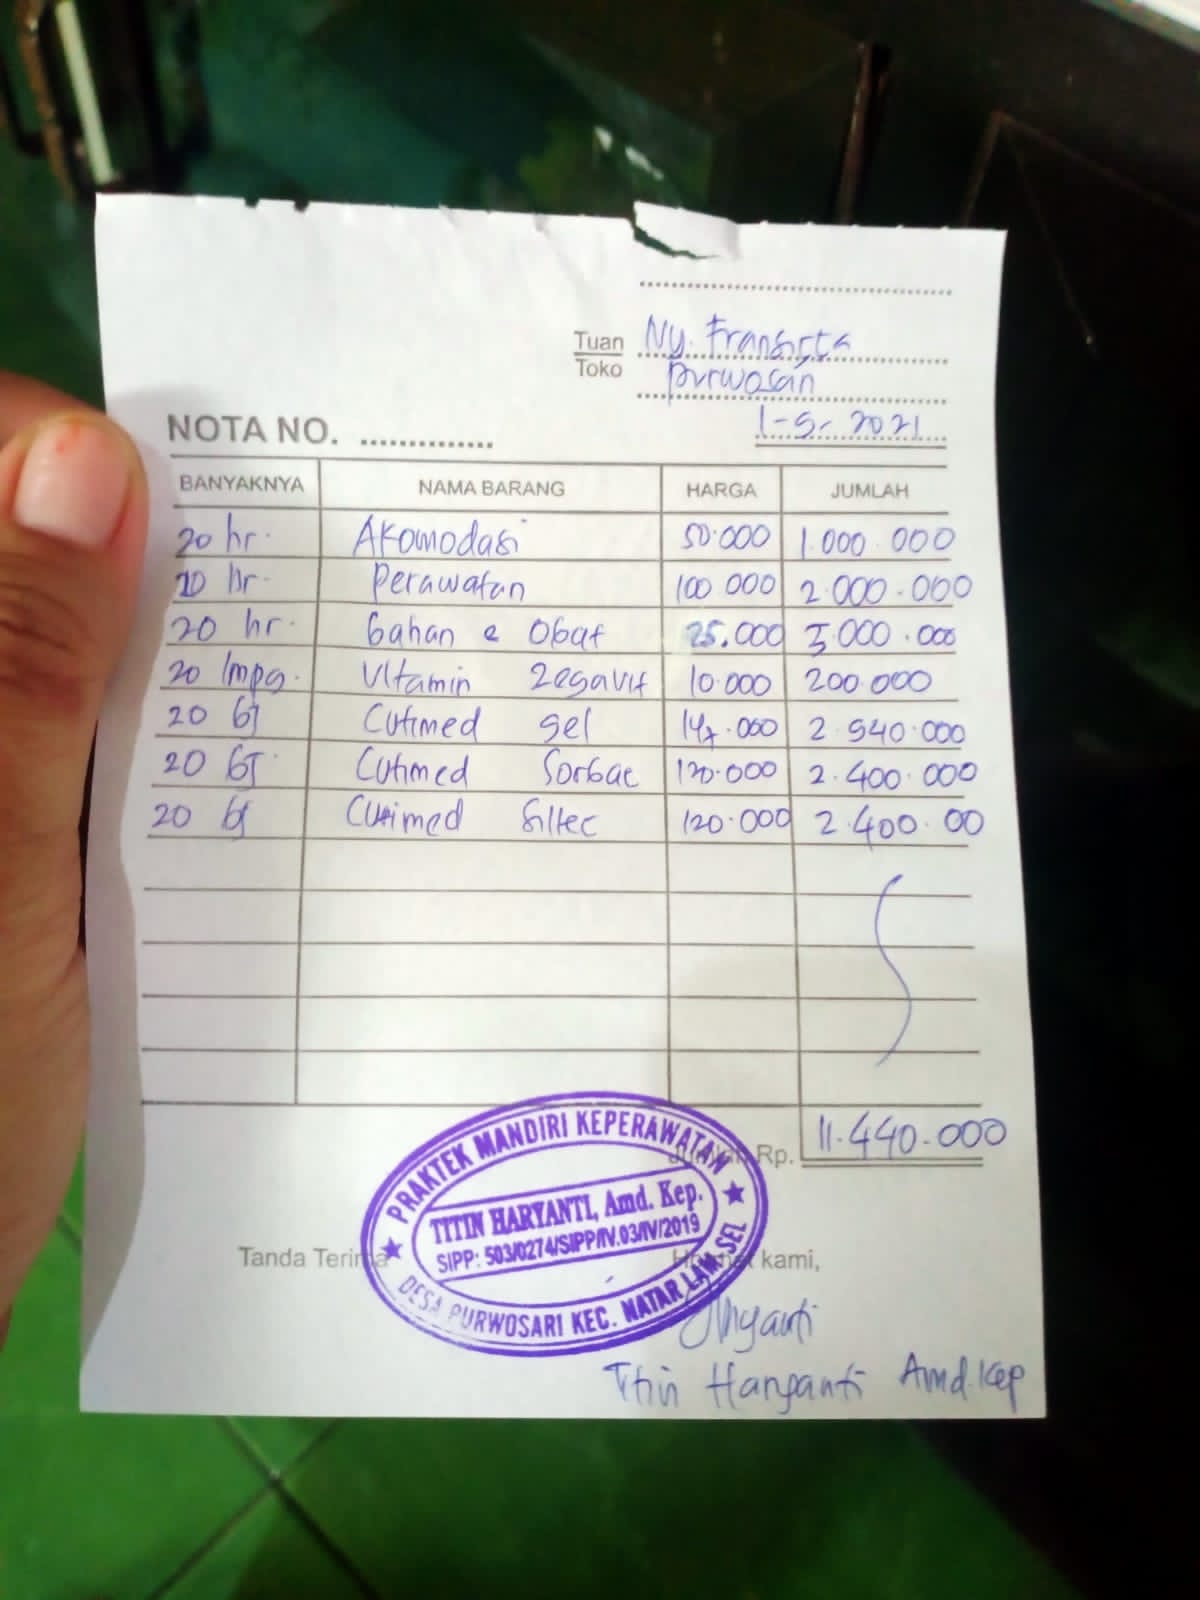 Tuan Ny. Fransista
Toko Purwosari
1-5-2021
NOTA NO. ................
BANYAKNYA NAMA BARANG HARGA JUMLAH
20 hr. Akomodasi 50.000 1.000.000
20 hr. Perawatan 100.000 2.000.000
20 hr. bahan & Obat 25.000 5.000.000
20 lmpg. Vitamin Zegavit 10.000 200.000
20 bj Cutimed gel 147.000 2.940.000
20 bj Cutimed Sorbac 120.000 2.400.000
20 bj Cutimed Siltec 120.000 2.400.00
Jumlah Rp. 11.440.000
PRAKTEK MANDIRI KEPERAWATAN
TITIN HARYANTI, Amd. Kep.
SIPP: 503/0274/SIPP/IV.03/IV/2019
DESA PURWOSARI KEC. NATAR LAM-SEL
Tanda Terima Hormat kami,
Titin Haryanti Amd.Kep